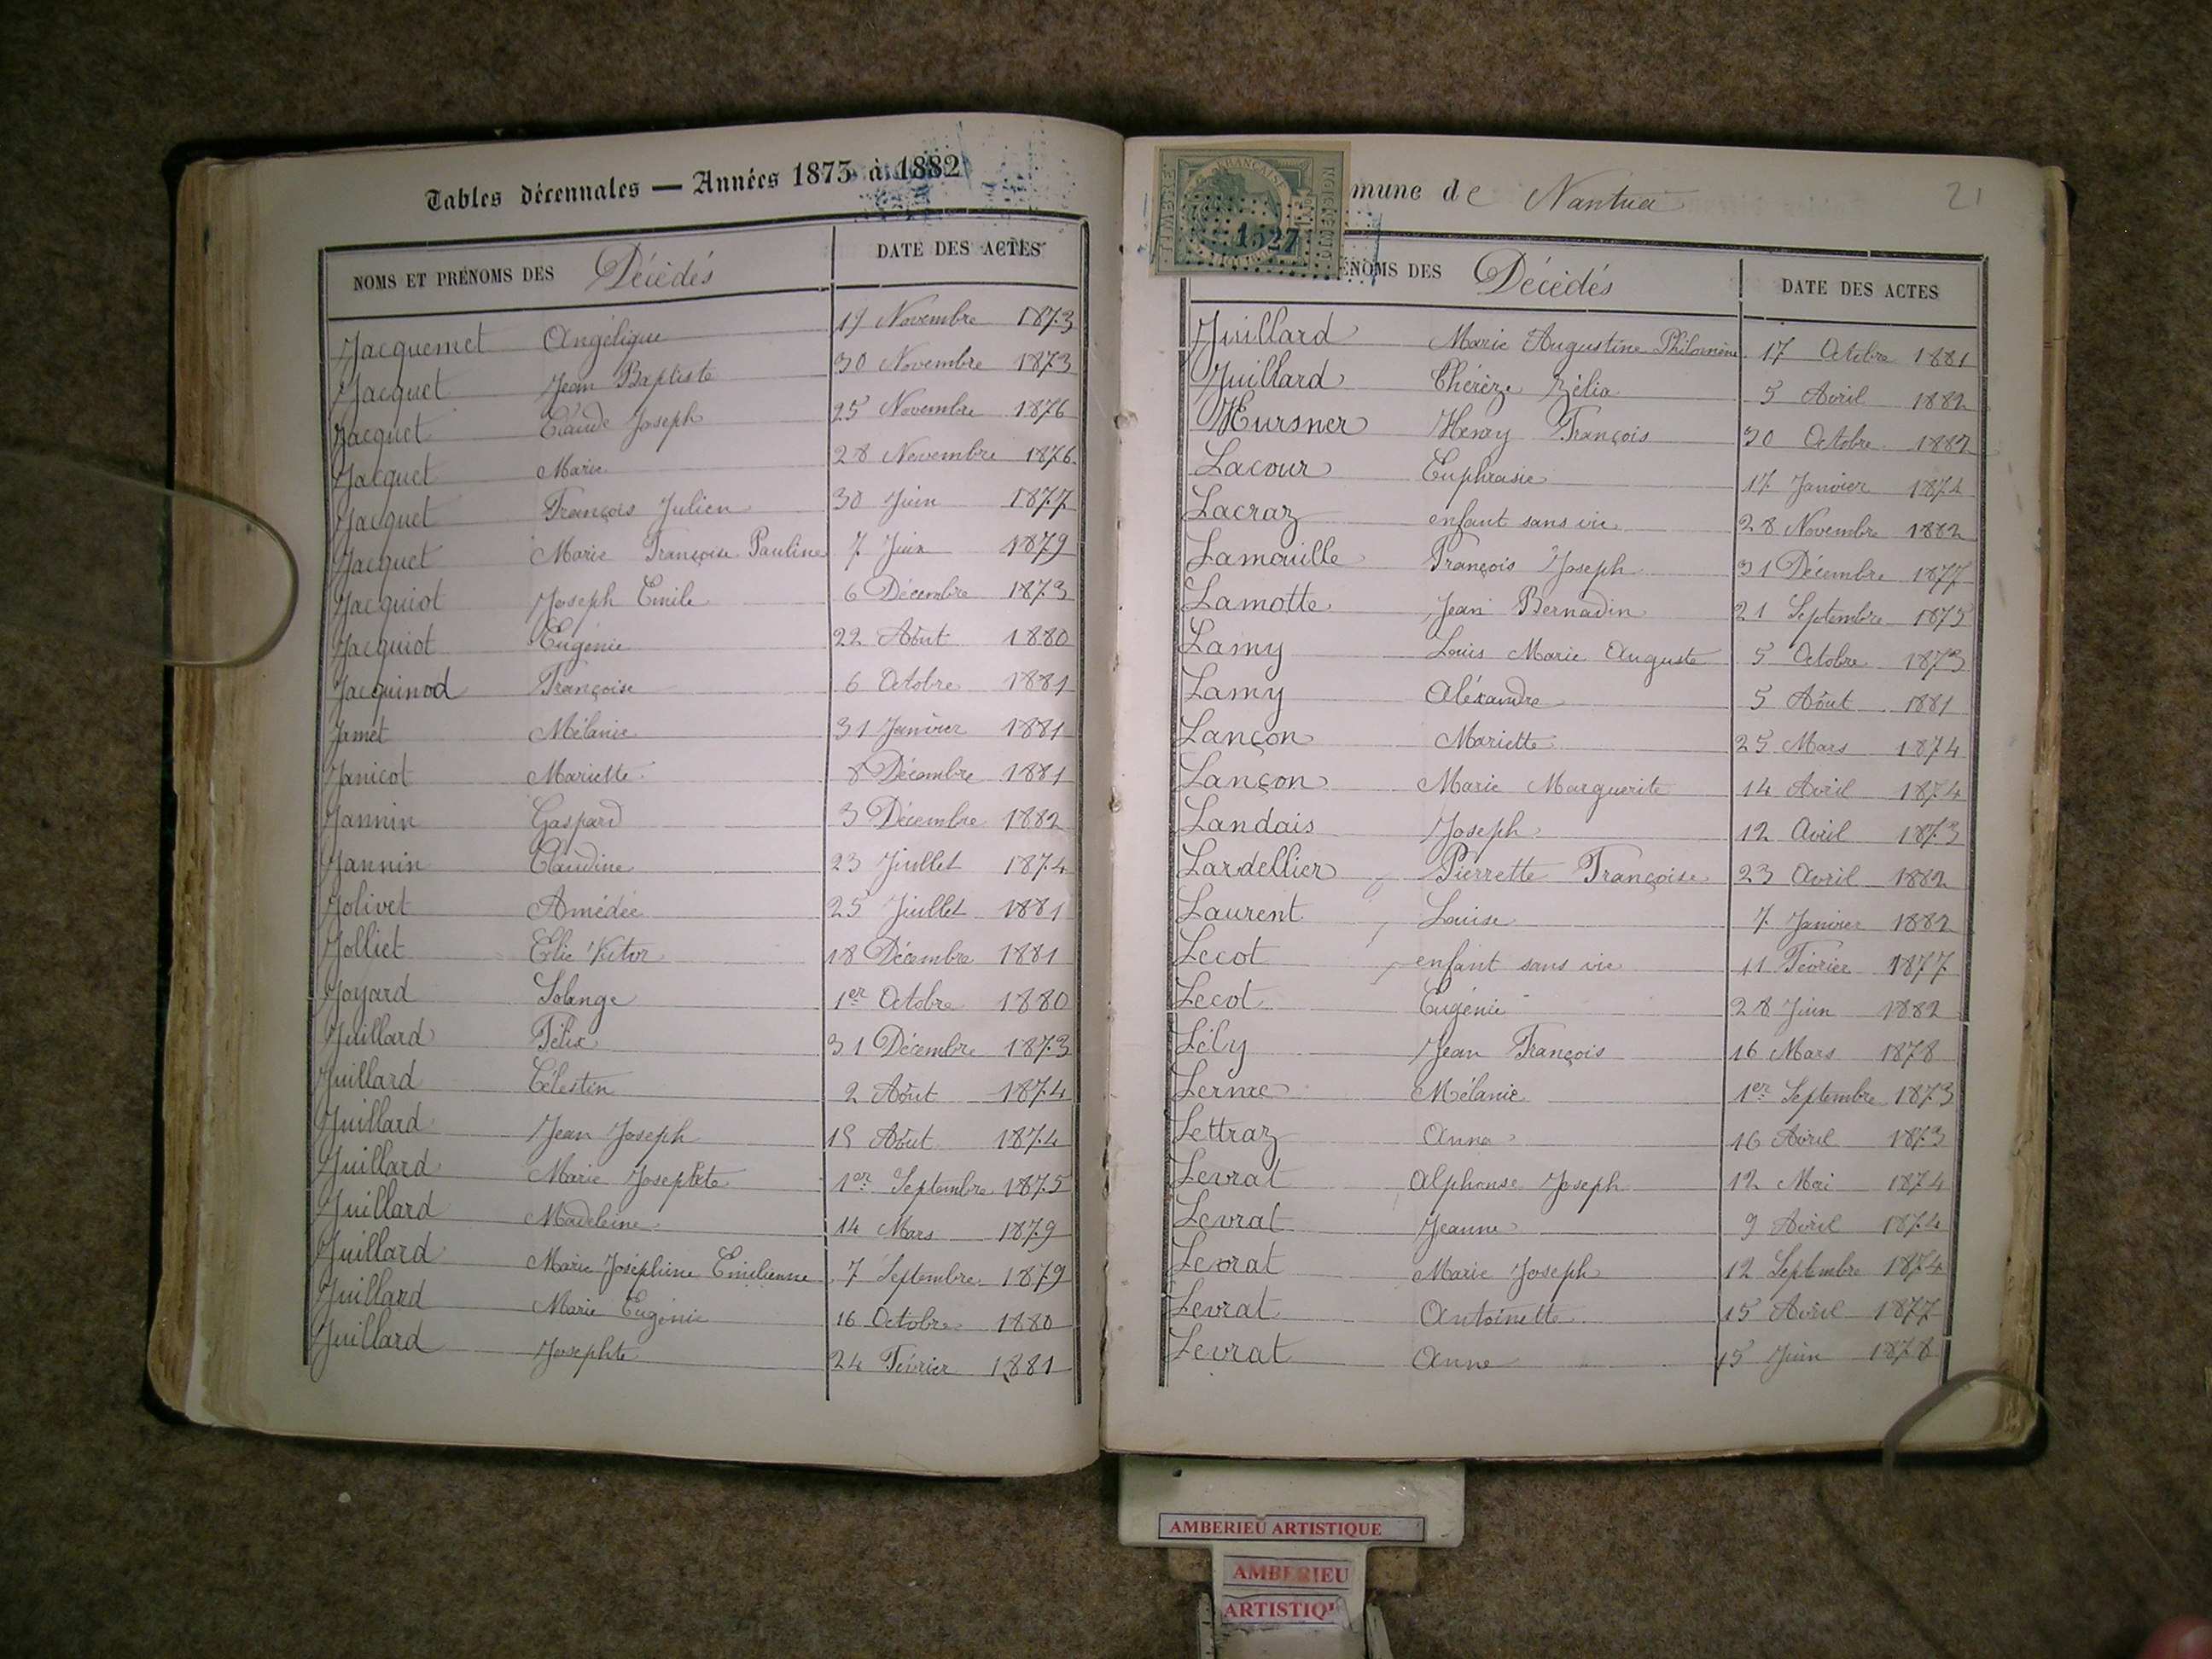 Tables décennales — Années 1873 à 1882
NOMS ET PRÉNOMS DES Décédés DATE DES ACTES
Jacquemet Angélique 17 Novembre 1873
Jacquet Jean Baptiste 30 Novembre 1873
Jacquet Claude Joseph 25 Novembre 1876
Jacquet Marie 28 Novembre 1876
Jacquet François Julien 30 Juin 1877
Jacquet Marie Françoise Pauline 7 Juin 1879
Jacquiot Joseph Emile 6 Décembre 1873
Jacquiot Eugénie 22 Août 1880
Jacquinod Françoise 6 Octobre 1881
Jamet Mélanie 31 Janvier 1881
Janicot Mariette 8 Décembre 1881
Jannin Gaspard 3 Décembre 1882
Jannin Claudine 23 Juillet 1874
Jolivet Amédée 25 Juillet 1881
Jolliet Elie Victor 18 Décembre 1881
Joyard Solange 1er Octobre 1880
Juillard Félix 31 Décembre 1873
Juillard Célestin 2 Août 1874
Juillard Jean Joseph 15 Août 1874
Juillard Marie Josephte 1er Septembre 1875
Juillard Madeleine 14 Mars 1879
Juillard Marie Joséphine Emilienne 7 Septembre 1879
Juillard Marie Eugénie 16 Octobre 1880
Juillard Josephte 24 Février 1881
mune de Nantua 21
TIMBRE FRANÇAISE DIMENSION
1527
ÉNOMS DES Décédés DATE DES ACTES
Juillard Marie Augustine Philomène 17 Octobre 1881
Juillard Thérèze Zélia 5 Avril 1882
Hursner Henry François 30 Octobre 1882
Lacour Euphrasie 17 Janvier 1874
Lacraz enfant sans vie 28 Novembre 1882
Lamouille François Joseph 31 Décembre 1877
Lamotte Jean Bernadin 21 Septembre 1875
Lamy Louis Marie Auguste 5 Octobre 1873
Lamy Aléxandre 5 Août 1881
Lançon Mariette 25 Mars 1874
Lançon Marie Marguerite 14 Avril 1874
Landais Joseph 12 Avril 1873
Lardellier Pierrette Françoise 23 Avril 1882
Laurent Louise 7 Janvier 1882
Lecot enfant sans vie 11 Février 1877
Lecot Eugénie 28 Juin 1882
Lély Jean François 16 Mars 1878
Lerme Mélanie 1er Septembre 1873
Lettraz Anna 16 Avril 1873
Levrat Alphonse Joseph 12 Mai 1874
Levrat Jeanne 9 Avril 1874
Levrat Marie Joseph 12 Septembre 1874
Levrat Antoinette 15 Avril 1877
Levrat Anne 15 Juin 1878
AMBERIEU ARTISTIQUE
AMBERIEU
ARTISTIQU